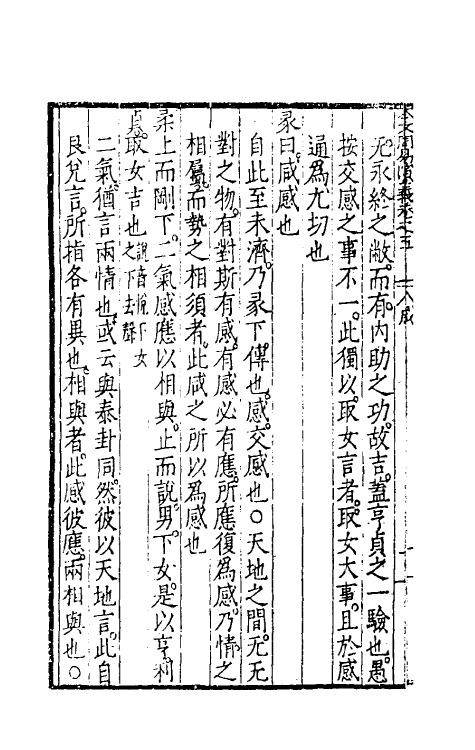 无永終之敝而有内助之功故吉蓋亨貞之一驗也愚
按交感之事不一此獨以取女言者取女大事且於感
通爲尤切也
彖曰咸感也
自此至未濟乃彖下傳也感交感也〇天地之間无无
對之物有對斯有感有感必有應所應復爲感乃情之
相屬而勢之相須者此咸之所以爲感也
柔上而剛下二氣感應以相與止而說男下女是以亨利
貞取女吉也說音悅下女之下去聲
二氣猶言兩情也或云與泰卦同然彼以天地言此自
艮兌言所指各有異也相與者此感彼應兩相與也〇